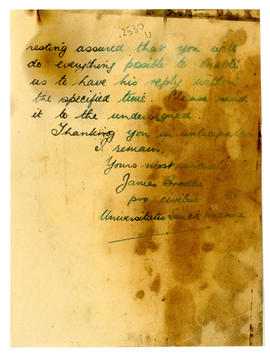 2530
resting assured that you will
do everything possible to enable
us to have his reply within
the specified time. Please send
it to the undersigned.
Thanking you in anticipation
I remain,
Yours most sincerely
James Brodie
pro civibus
Universitatis